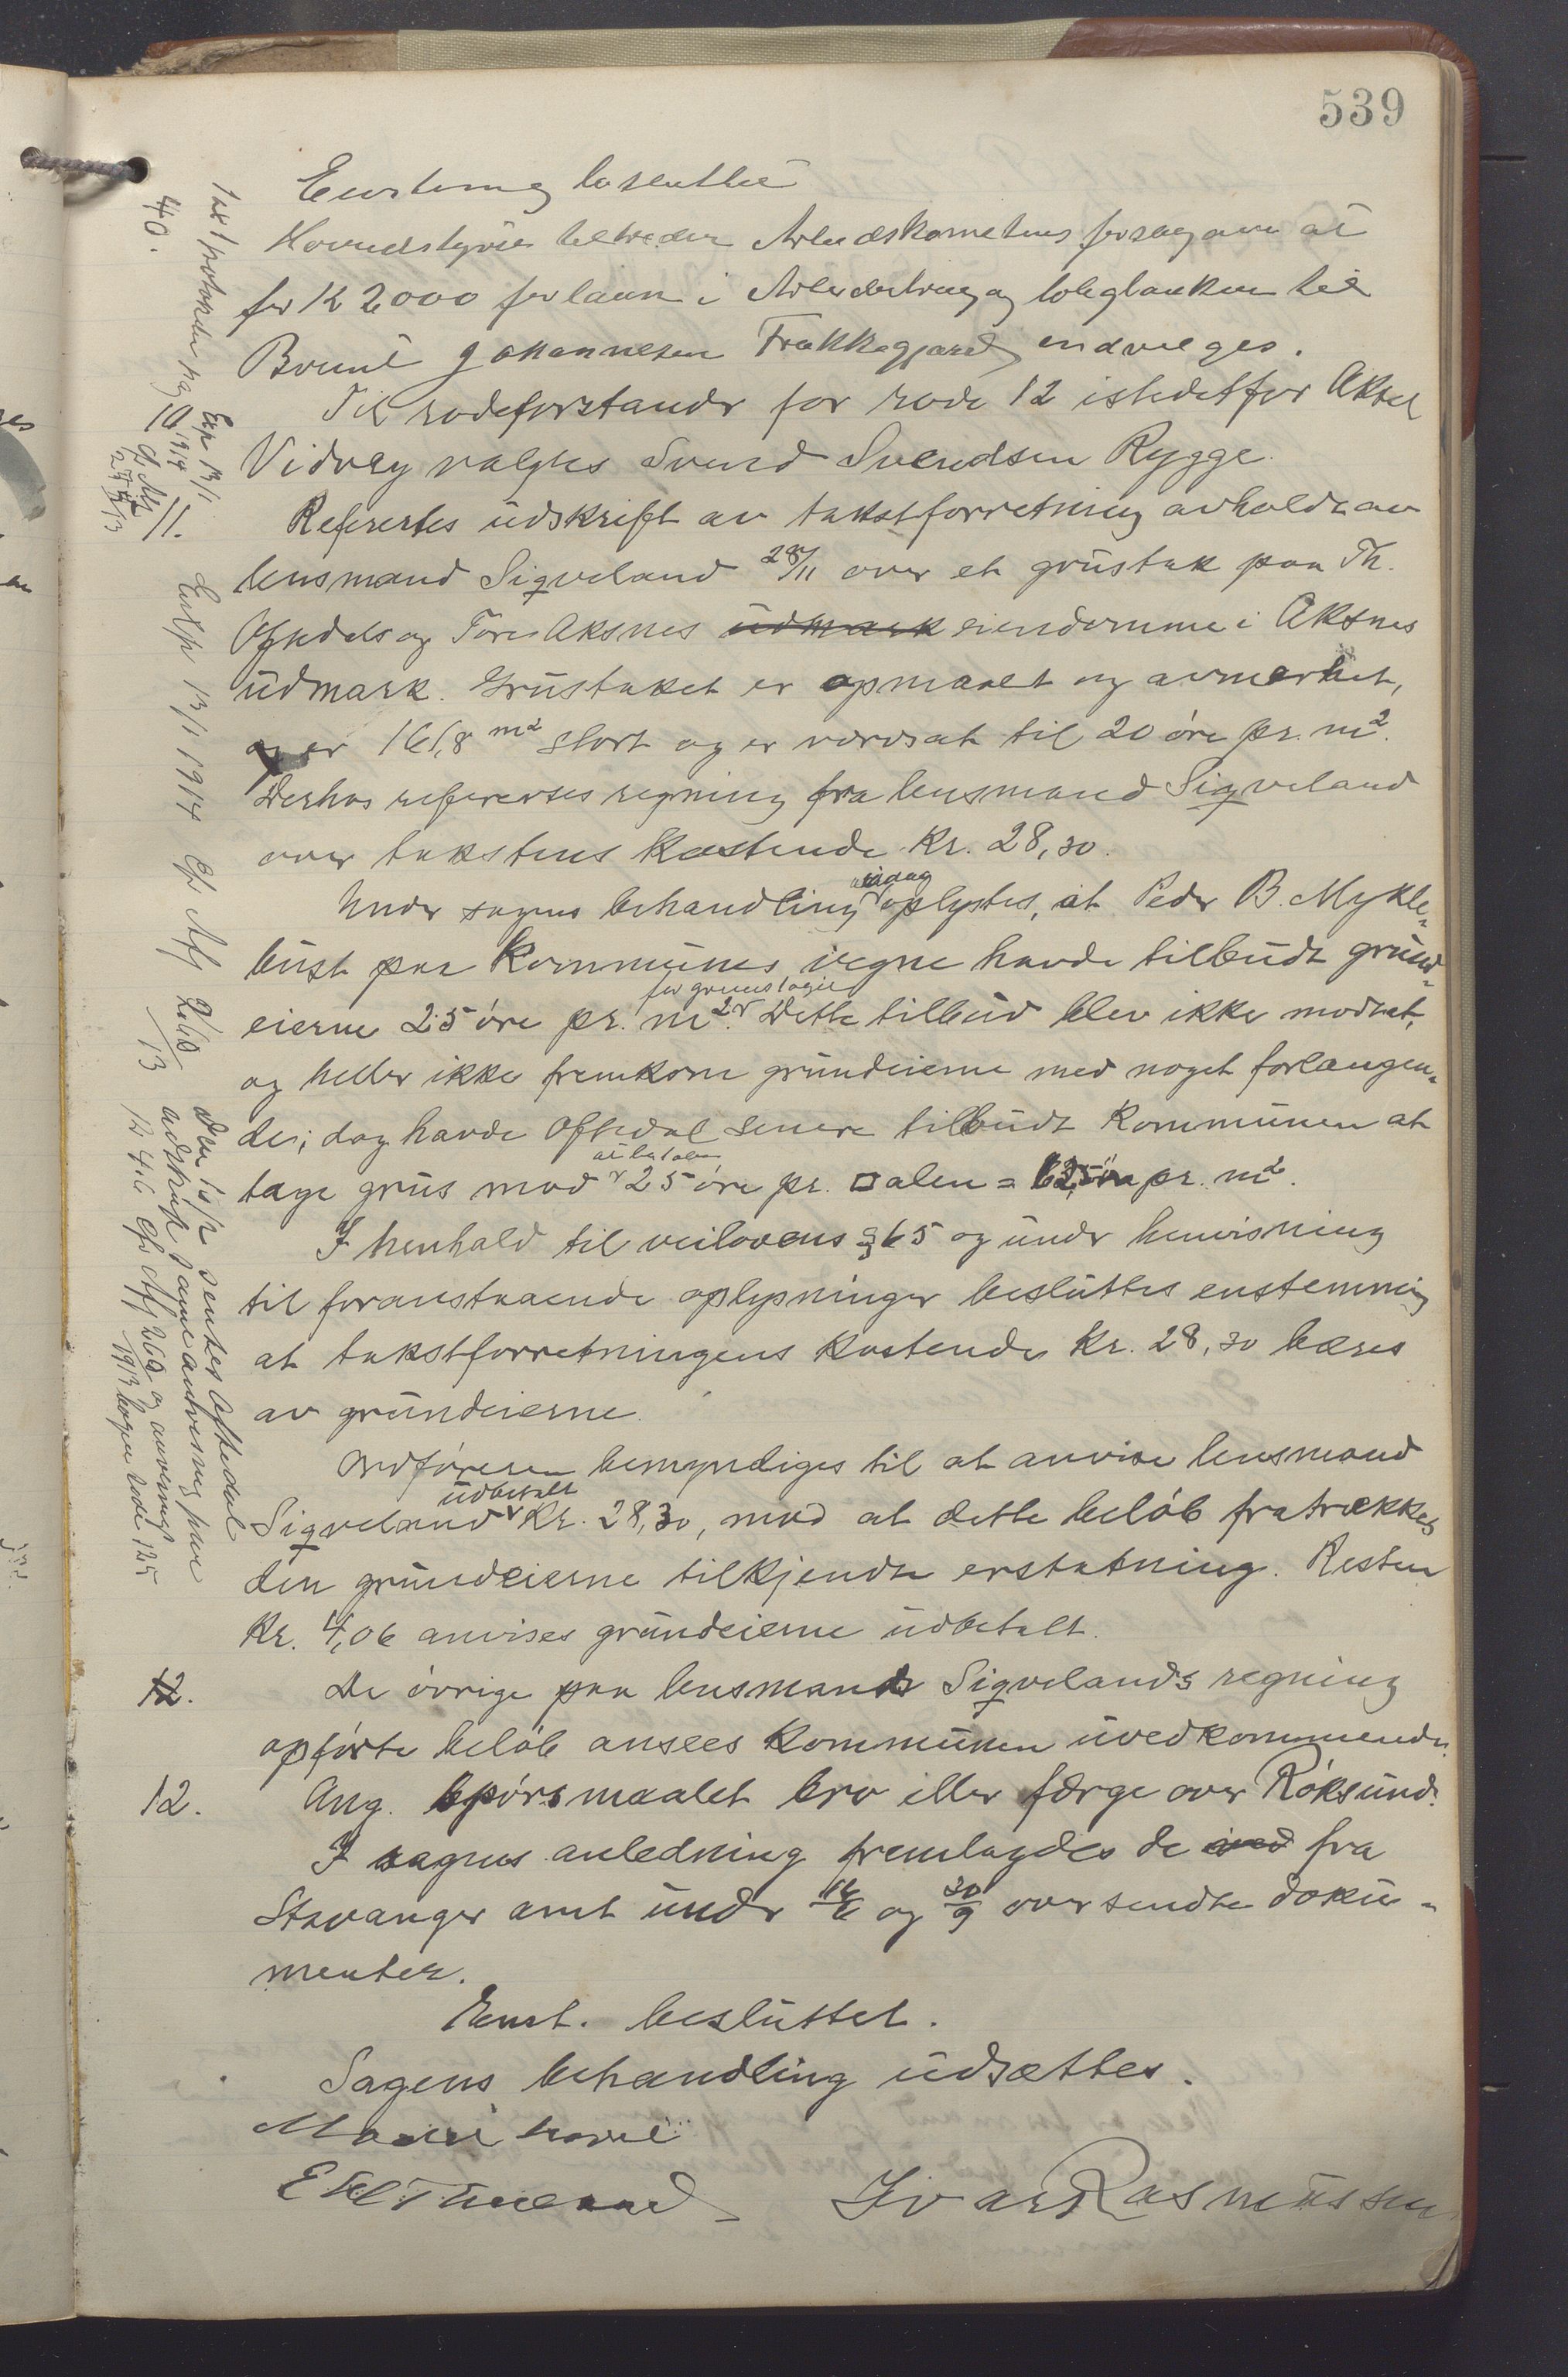 539
Enstemig besluttet
Herredstyret tiltræder Arbeidskomiteens forslag om at
for K 2000 for laan i Arbeiderbrug og boligbanken til
Johannesen Frakkagjærd endvilges.
10 Til rodeforstandr for rode 12 istedetfor Aksel
Vidvey valgtes Svend Svendsen Rygge.
11. Refertes udskrift av takstforretning avholdt av
lensmand Sigveland 28/11 over et grustak paa Th.
Oftedals og Tore Aksnes udmark eiendomme i Aksnes
udmark. Grustaket er opmaalt og avmerket,
og er 161,8 m² stort og er værdsat til 20 öre pr. m².
Derhos refereres regning fra lensmand Sigveland
over takstens kostende Kr. 28,30.
Under sagens behandling idag oplystes, at Peder B. Mykle-
bust paa Kommunes vegne havde tilbudt grund-
eierne 25 öre pr. m² for grustaget. Dette tilbud blev ikke modtat,
og heller ikke fremkom grundeierne med noget forlangen-
de; dog havde Oftedal senere tilbudt Kommunen at
tage grus mod at betale 25 öre pr. □ alen = 62,5 öre pr. m².
I henhold til veilovens § 65 og undr henvisning
til foranstaaende oplysninger besluttes enstemmig
at takstforretningens kostende Kr. 28,30 bæres
av grundeierne.
Ordföreren bemyndiges til at anvise lensmand
Sigveland udbetalt Kr. 28,30, mod at dette belöb fratrækkes
den grundeierne tilkjendte erstatning. Resten
Kr. 4,06 anvises grundeierne udbetalt.
12. De övrige paa lensmand Sigvelands regning
opförte belöb ansees Kommunen uvedkommende.
12. Ang. spörsmaalet bro eller færge over Röksund.
I sagens anledning fremlagdes de med fra
Stavanger amt undr 16/6 og 30/9 oversendte doku-
menter.
Enst. besluttet.
Sagens behandling udsættes.
Ivar Rasmussen
40.
Exp 13/1 1914
Exp 13/1 1914
Den 13/2 sentes Oftedal